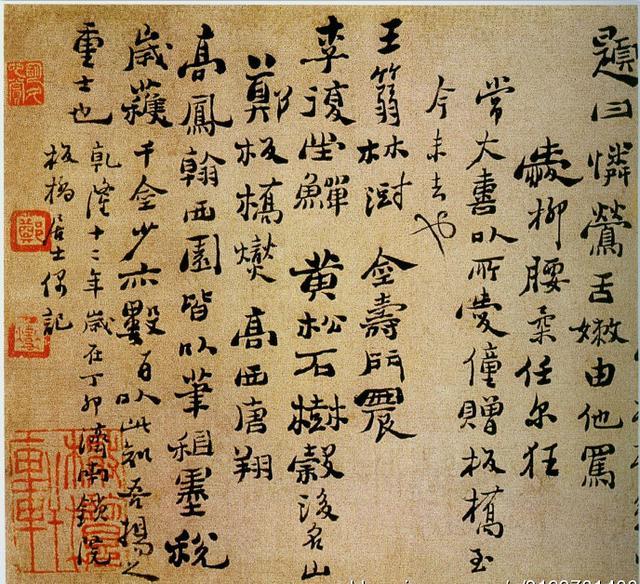 題曰憐鶯舌嫩由他罵
愛柳腰柔任尔狂
常大喜以所愛僮贈板橋至
今未去也
王篛林澍 金壽門農
李復堂鱓 黃松石樹榖後名山
鄭板橋燮 高西唐翔
高鳳翰西園皆以筆租墨稅
歲獲千金少亦數百以此知吾揚之
重士也 乾隆十二年歲在丁卯濟南鎖院
板橋居士偶記
鄭